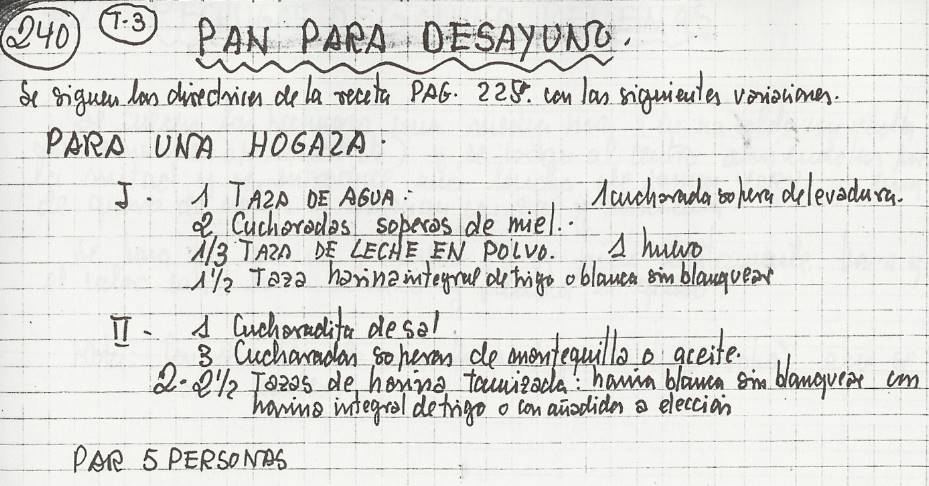 240 T-3 PAN PARA DESAYUNO.
Se siguen las directrices de la receta PAG. 225. con las siguientes variaciones.
PARA UNA HOGAZA.
I. 1 TAZA DE AGUA: 1 cucharada sopera de levadura.
2 Cucharadas soperas de miel.
1/3 TAZA DE LECHE EN POLVO. 1 huevo
1 1/2 Taza harina integral de trigo o blanca sin blanquear
II - 1 Cucharadita de sal
3 Cucharadas soperas de mantequilla o aceite.
2-2 1/2 Tazas de harina tamizada: harina blanca sin blanquear con
harina integral de trigo o con añadidos a elección
PAR 5 PERSONAS